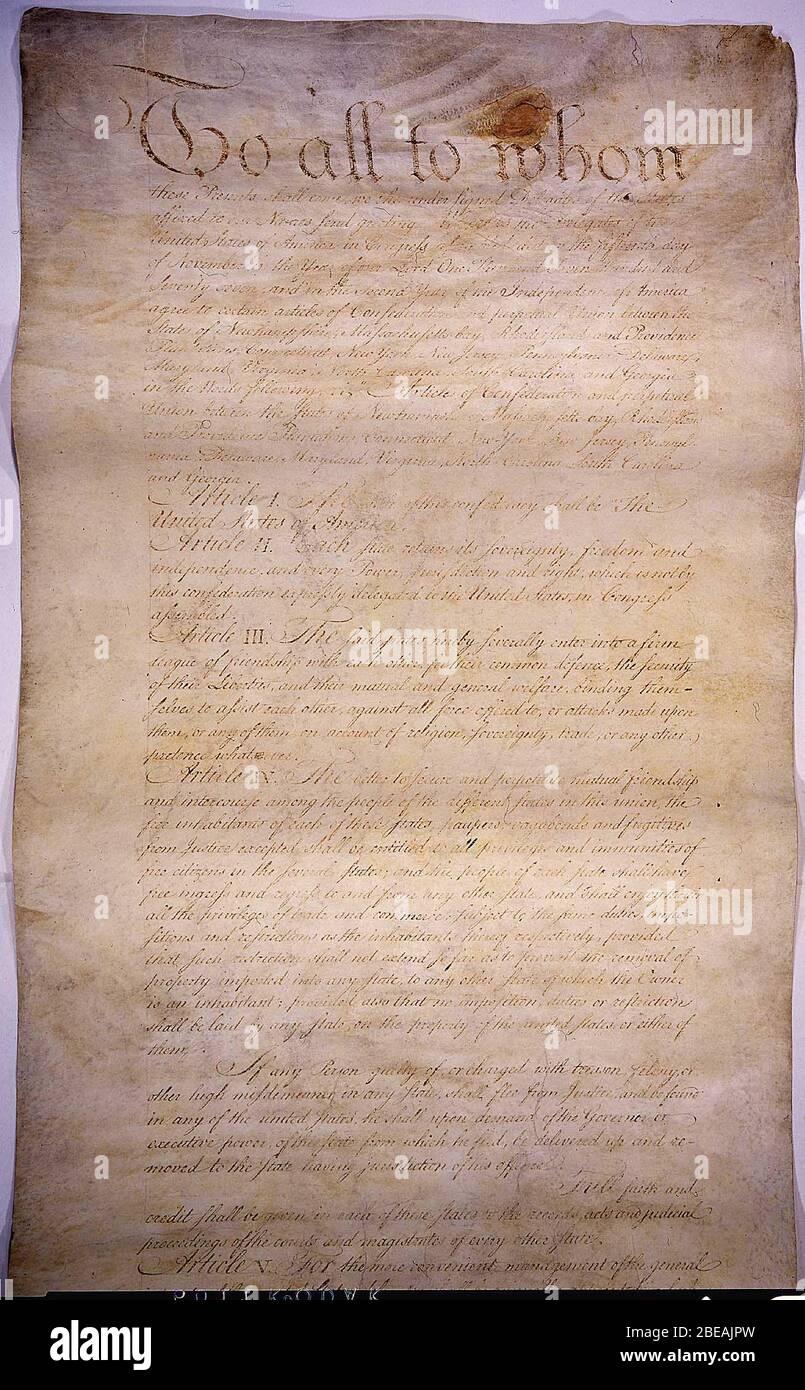 To all to whom
these Presents shall come, we the under signed Delegates of the States
affixed to our Names send greeting. Whereas the Delegates of the
United States of America in Congress assembled did on the fifteenth day
of November in the Year of our Lord One Thousand Seven Hundred and
Seventy seven, and in the Second Year of the Independence of America
agree to certain articles of Confederation and perpetual Union between the
States of Newhampshire, Massachusetts-bay, Rhodeisland and Providence
Plantations, Connecticut, New York, New Jersey, Pennsylvania, Delaware,
Maryland, Virginia, North-Carolina, South-Carolina and Georgia
in the Words following, viz. "Articles of Confederation and perpetual
Union between the States of Newhampshire, Massachusetts-bay, Rhodeisland
and Providence Plantations, Connecticut, New-York, New-Jersey, Pennsyl-
vania, Delaware, Maryland, Virginia, North-Carolina, South-Carolina
and Georgia.
Article I. The of this confederacy shall be "The
United States of America.
Article II. Each state retains its sovereignty, freedom and
independence, and every Power, Jurisdiction and right, which is not by
this confederation expressly delegated to the United States, in Congress
assembled.
Article III. The said states hereby severally enter into a firm
league of friendship with each other, for their common defence, the security
of their Liberties, and their mutual and general welfare, binding them-
selves to assist each other, against all force offered to, or attacks made upon
them, or any of them, on account of religion, sovereignty, trade, or any other
pretence whatever.
Article IV. The better to secure and perpetuate mutual friendship
and intercourse among the people of the different states in this union, the
free inhabitants of each of these states, paupers, vagabonds and fugitives
from Justice excepted, shall be entitled to all privileges and immunities of
free citizens in the several states; and the people of each state shall have
free ingress and regress to and from any other state, and shall enjoy therein
all the privileges of trade and commerce, subject to the same duties, impo-
sitions and restrictions as the inhabitants thereof respectively, provided
that such restriction shall not extend so far as to prevent the removal of
property imported into any state, to any other state of which the Owner
is an inhabitant; provided also that no imposition, duties or restriction
shall be laid by any state, on the property of the united states, or either of
them.
If any Person guilty of, or charged with treason, felony, or
other high misdemeanor in any state, shall flee from Justice, and be found
in any of the united states, he shall upon demand of the Governor or
executive power, of the state from which he fled, be delivered up and re-
moved to the state having jurisdiction of his offence.
Full faith and
credit shall be given in each of these states to the records, acts and judicial
proceedings of the courts and magistrates of every other state.
Article V. For the more convenient management of the general
alamy
Image ID: 2BEAJPW
www.alamy.com